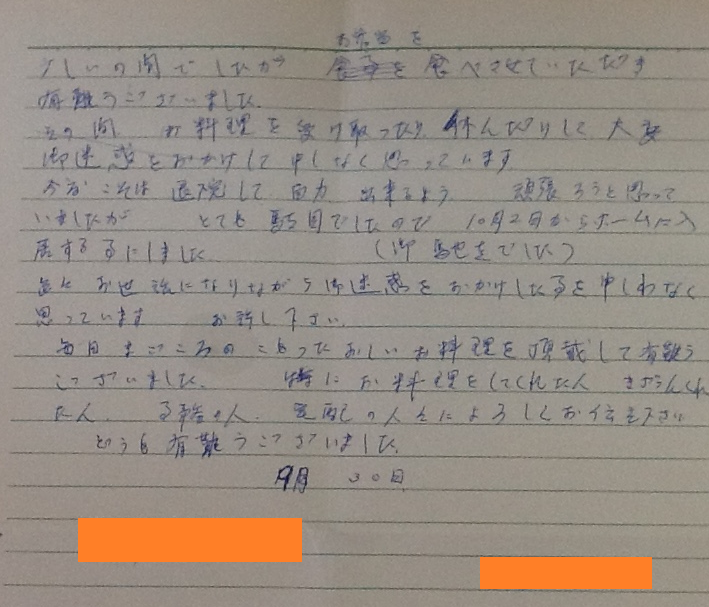 お弁当を
少しの間でしたが 食事を 食べさせていただき
有難うございました。
その間 お料理を受け取ったり 休んだりして 大変
御迷惑をおかけして申しなく思っています
今度こそは 退院して 自力 出来るよう 頑張ろうと思って
いましたが とても駄目でしたので 10月2日からホームに入
居する事にしました (御馳走でした)
お世話になりながら御迷惑をおかけした事を申しわなく
思っています お許し下さい。
毎日まごころのこもったおいしいお料理を頂戴して有難う
ございました。 特にお料理をしてくれた人
た人、 の人、 宅配の人々によろしくお伝え下さい
どうも有難うございました
9月 30日